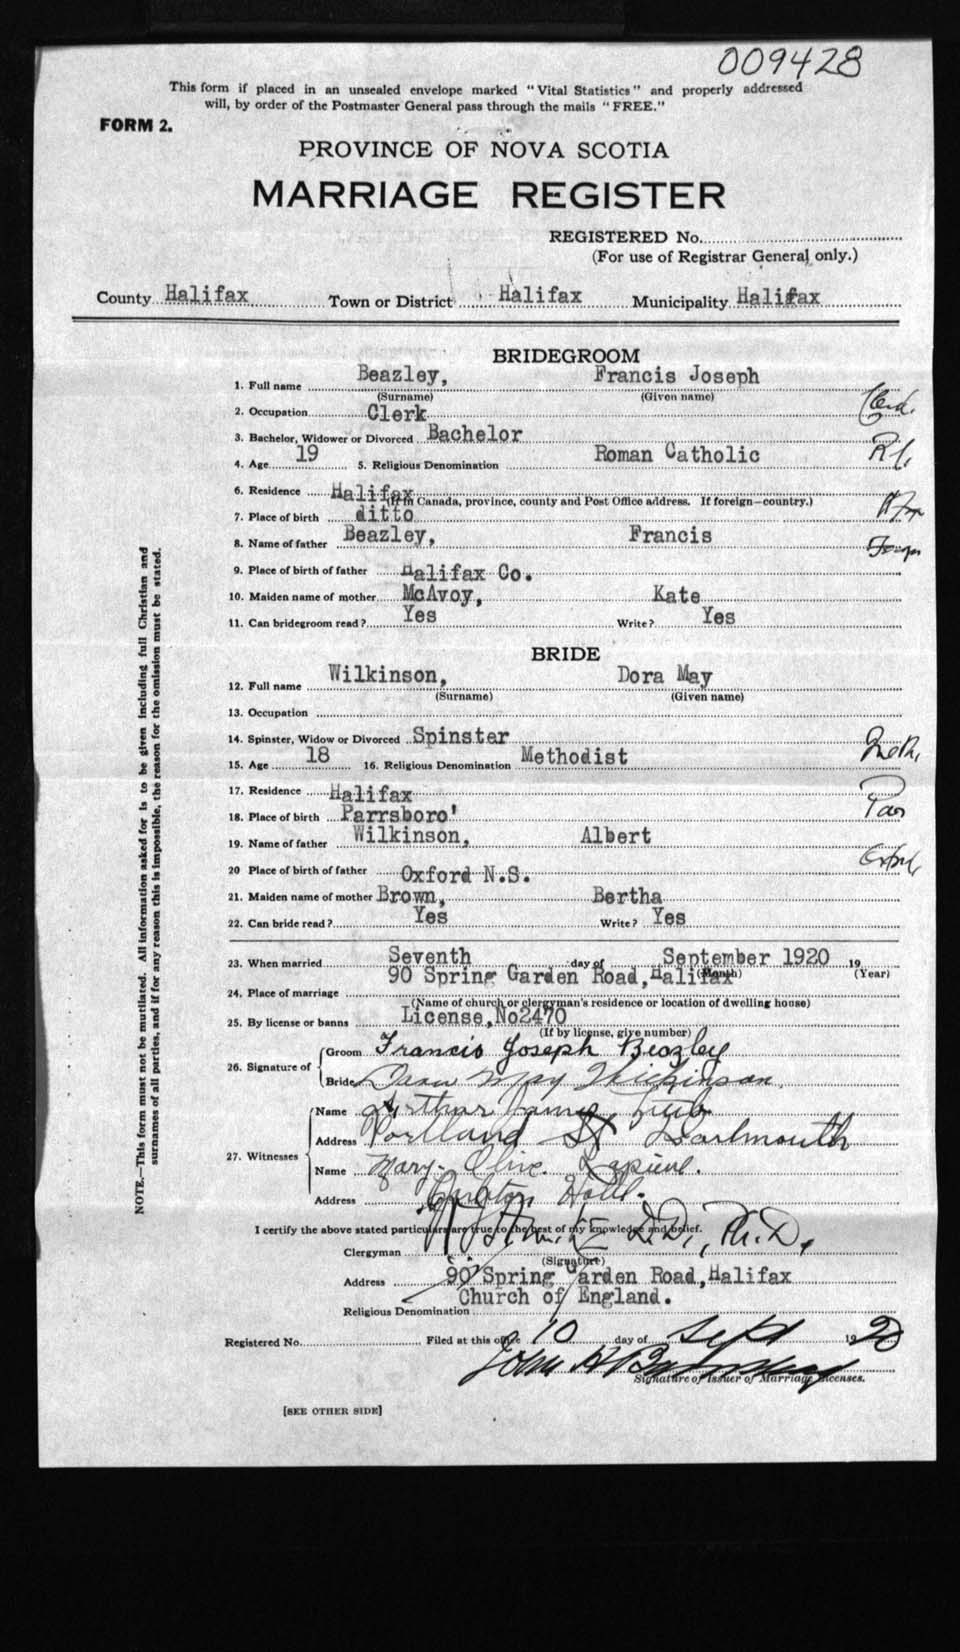 009428
This form if placed in an unsealed envelope marked "Vital Statistics" and properly addressed
will, by order of the Postmaster General pass through the mails "FREE."
FORM 2.
PROVINCE OF NOVA SCOTIA
MARRIAGE REGISTER
REGISTERED No.
(For use of Registrar General only.)
County Halifax Town or District Halifax Municipality Halifax
BRIDEGROOM
1. Full name Beazley, Francis Joseph
(Surname) (Given name)
2. Occupation Clerk
3. Bachelor, Widower or Divorced Bachelor
4. Age 19 5. Religious Denomination Roman Catholic
6. Residence Halifax
(If in Canada, province, county and Post Office address. If foreign—country.)
7. Place of birth ditto
8. Name of father Beazley, Francis
9. Place of birth of father Halifax Co.
10. Maiden name of mother McAvoy, Kate
11. Can bridegroom read? Yes Write? Yes
BRIDE
12. Full name Wilkinson, Dora May
(Surname) (Given name)
13. Occupation
14. Spinster, Widow or Divorced Spinster
15. Age 18 16. Religious Denomination Methodist
17. Residence Halifax
18. Place of birth Parrsboro'
19. Name of father Wilkinson, Albert
20 Place of birth of father Oxford N.S.
21. Maiden name of mother Brown, Bertha
22. Can bride read? Yes Write? Yes
23. When married Seventh day of September 1920 19
(Month) (Year)
24. Place of marriage 90 Spring Garden Road, Halifax
(Name of church or clergyman's residence or location of dwelling house)
25. By license or banns License, No2470
(If by license, give number)
26. Signature of
Groom Francis Joseph Beazley
Bride May Wilkinson
27. Witnesses
Name Arthur James
Address Portland St Dartmouth
Name Mary Olive
Address Carleton Hotel.
I certify the above stated particulars are true to the best of my knowledge and belief.
Clergyman D.D., Ph.D.
(Signature)
Address 90 Spring Garden Road, Halifax
Religious Denomination Church of England.
Registered No. Filed at this office 10 day of Sept 1920
John
Signature of Issuer of Marriage Licenses.
[SEE OTHER SIDE]
NOTE.—This form must not be mutilated. All information asked for is to be given including full Christian and
surnames of all parties, and if for any reason this is impossible, the reason for the omission must be stated.